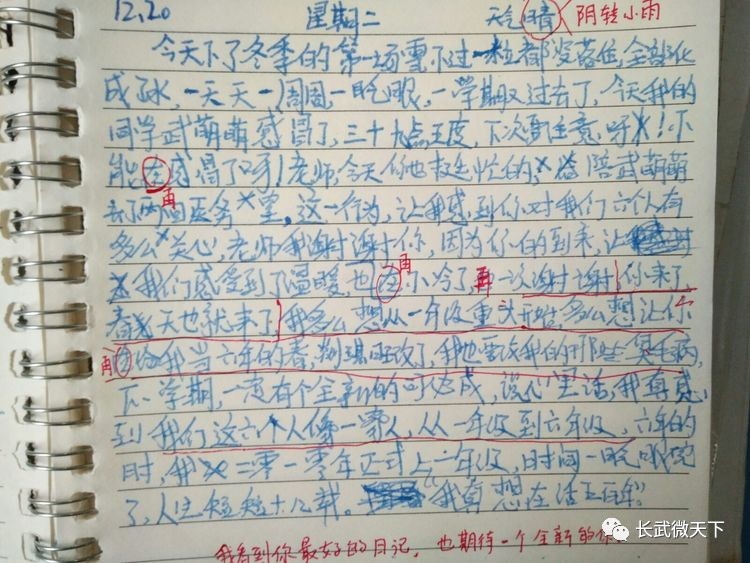 12.20 星期二 天气晴 阴转小雨
今天下了冬季的第一场雪不过一粒都没落住,全部化
成了水,一天天一周周一眨眼,一学期又过去了,今天我的
同学武萌萌感冒了,三十九点五度,下次要注意呀!不
能在感冒了呀!老师,今天你也挺忙的,陪武萌萌
再
去了两回医务室,这一行为,让我感到你对我们六个人有
多么关心,老师我谢谢谢你,因为你的到来,让
我们感受到了温暖,也在不冷了,再一次谢谢!你来了,
再
春天也就来了,我多么想从一年级重头开始,多么想让你
再 在给我当六年的老师,我也要改我的那些臭毛病,
下一学期,一定有个全新的,说心里话,我真感
到我们这六个人像一家人,从一年级到六年级,六年的
时,我二零一零年正式上一年级,时间一眨眼
了,人生短短十几载。我真想在活五百年!
我看到你最好的日记,也期待一个全新的你
长武微天下